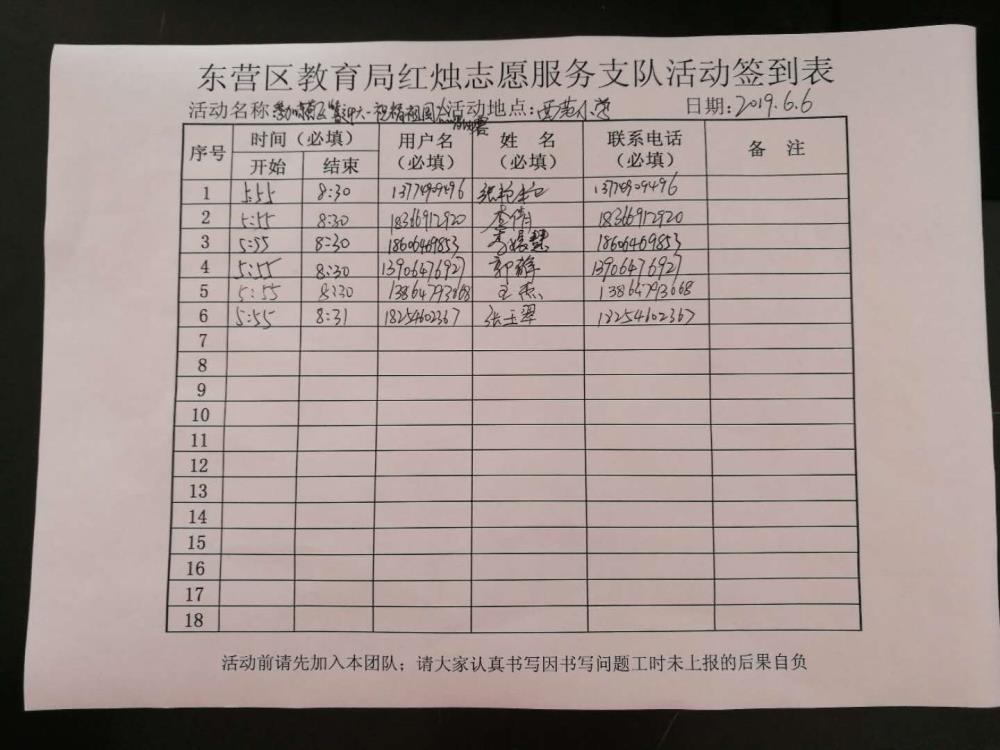 东营区教育局红烛志愿服务支队活动签到表
活动名称: 祝福祖国 活动地点: 西苑小学 日期: 2019.6.6
序号 时间（必填） 用户名（必填） 姓 名（必填） 联系电话（必填） 备 注
开始 结束
1 5:55 8:30 13774909496 13774909496
2 5:55 8:30 18366912920 李倩 18366912920
3 5:55 8:30 18606469853 18606469853
4 5:55 8:30 13906476927 郭静 13906476927
5 5:55 8:30 13864793068 王杰 13864793068
6 5:55 8:31 18254602367 张玉翠 18254602367
7
8
9
10
11
12
13
14
15
16
17
18
活动前请先加入本团队；请大家认真书写因书写问题工时未上报的后果自负